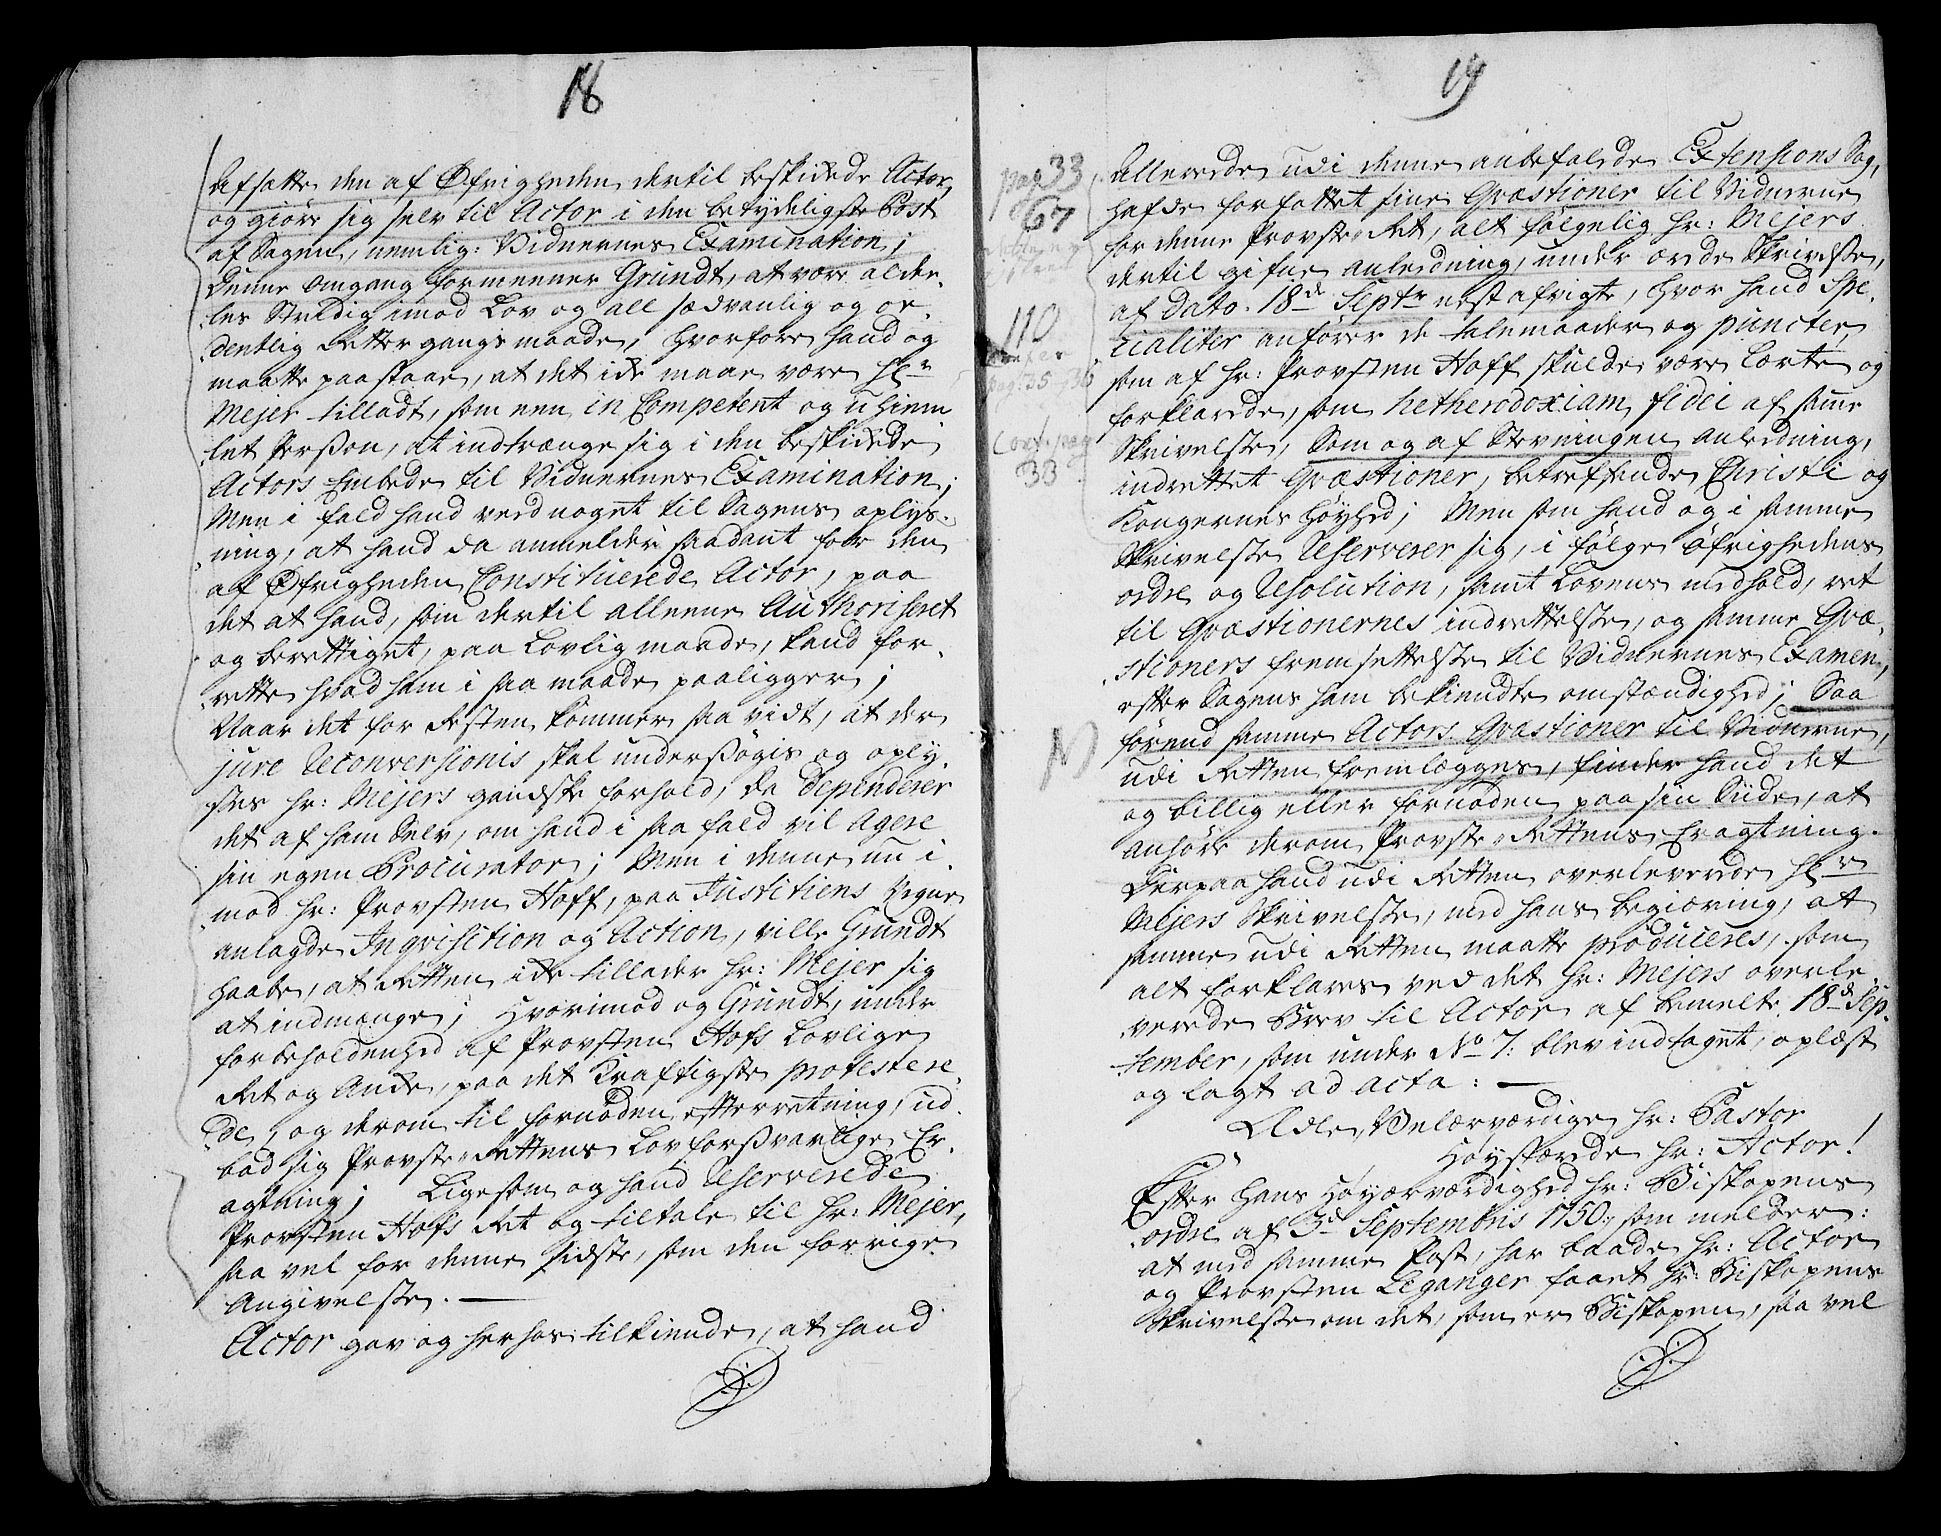 18
Afsatte den af Øfrigheden dertil beskikede Actor,
og giöre sig selv til Actor i den betydeligste Post
af Sagen, nemlig: Vidnernes Examination;
Denne omgang formeener Grundt, at være alde-
les Stridig imod Lov og all sædvanlig og or-
dentlig Rettergangs maade, hvorfore hand og
maatte paastaae, at det icke maae være Hr.
Mejer tilladt, som een in Competent og uhiem-
let Persson, at indtrænge sig i den beskikede
Actors Embede til Vidnernes Examination;
Men i fald hand veed noget til Sagens oplys-
ning, at hand da anmelder saadant for den
af Øfrigheden Constituerede Actor, paa
det at hand, som dertil alleene Authoriseret
og berettiget, paa Lovlig maade, kand for-
rette hvad ham i saa maade paaligger;
Naar det for Resten kommer saa vidt, at der
jure Reconversionis skal undersøgis og oply-
ses Hr: Mejers gandske forhold, da dependerer
det af ham Selv, om hand i saa fald vil Agere
sin egen Procurator; Men i denne nu i-
mod Hr: Provsten Hoff, paa Justitiens Vegne
anlagde Inqvisition og Action, ville Grundt
haabe, at Retten icke tillader Hr: Mejer sig
at indmænge; Hvorimod og Grundt, under
forbeholdenhed af Provsten Hofs Lovlige
Ret og Anke, paa det Kraftigste protestere-
de, og derom til fornöden efterretning, ud-
bad sig Provste-Rettens Lovforsvarlige Er-
agtning; Ligesom og hand Reserverede
Provsten Hofs Ret og tiltale til Hr: Mejer,
saa vel for denne sidste, som den forrige
Angivelse.
Actor gav og herhos tilkiende, at hand
19
pag 33
67
110
pag: 35-36
Conf. pag
33
Allereede udi denne anbefalede Extensions Sag,
hafde forfattet sine Qvæstioner til Vidnerne
for denne Provste-Ret, alt følgelig Hr: Mejers
dertil gifne anledning, under ... Skrivelse,
af Dato 18de Septr nest afvigte, hvor hand Spe-
cialiter anfører de talemaader og puncter,
som af Hr: Provsten Hoff skulde være Lærte og
forklarede, som hetherodoxiam fidei af samme
Skrivelse, Som og af Stevningen anledning,
indrettet Qvæstioner, betreffende Christi og
Kongernes Høyhed; Men som hand og i samme
Skrivelse Reserverer sig, i følge Øfrighedens
ordre og Resolution, samt Lovens medhold, ret
til Qvæstionernes indrettelse, og samme Qvæ-
stioners fremsettelse til Vidnernes Examen,
efter Sagens ham bekiendte omstændighed; Saa
førend samme Actors Qvæstioner til Vidnerne,
udi Retten fremlægges, finder hand det
og billig eller fornøden paa sin Siide, at
anhöre derom Provste-Rettens Eragtning.
Derpaa hand udi Retten overleverede Hr.
Mejers Skrivelse, med hans begiering, at
samme udi Retten maatte produceres, som
alt forklares ved det Hr: Mejers overle-
verede Brev til Actor af bemelte 18de Sep-
tember, som under No 7: blev indtaget, oplæst
og lagt ad acta:
Ædle, Velærværdige Hr: Pastor
Højstærede Hr: Actor!
Efter Hans Høyærværdighed Hr: Biskopens
ordre af 3de Septembris 1750, som melder:
at med samme Post, har baade Hr: Actor
og Provsten Leganger faaet Hr: Biskopens
Skrivelse om det, som er Biskopen, saa vel